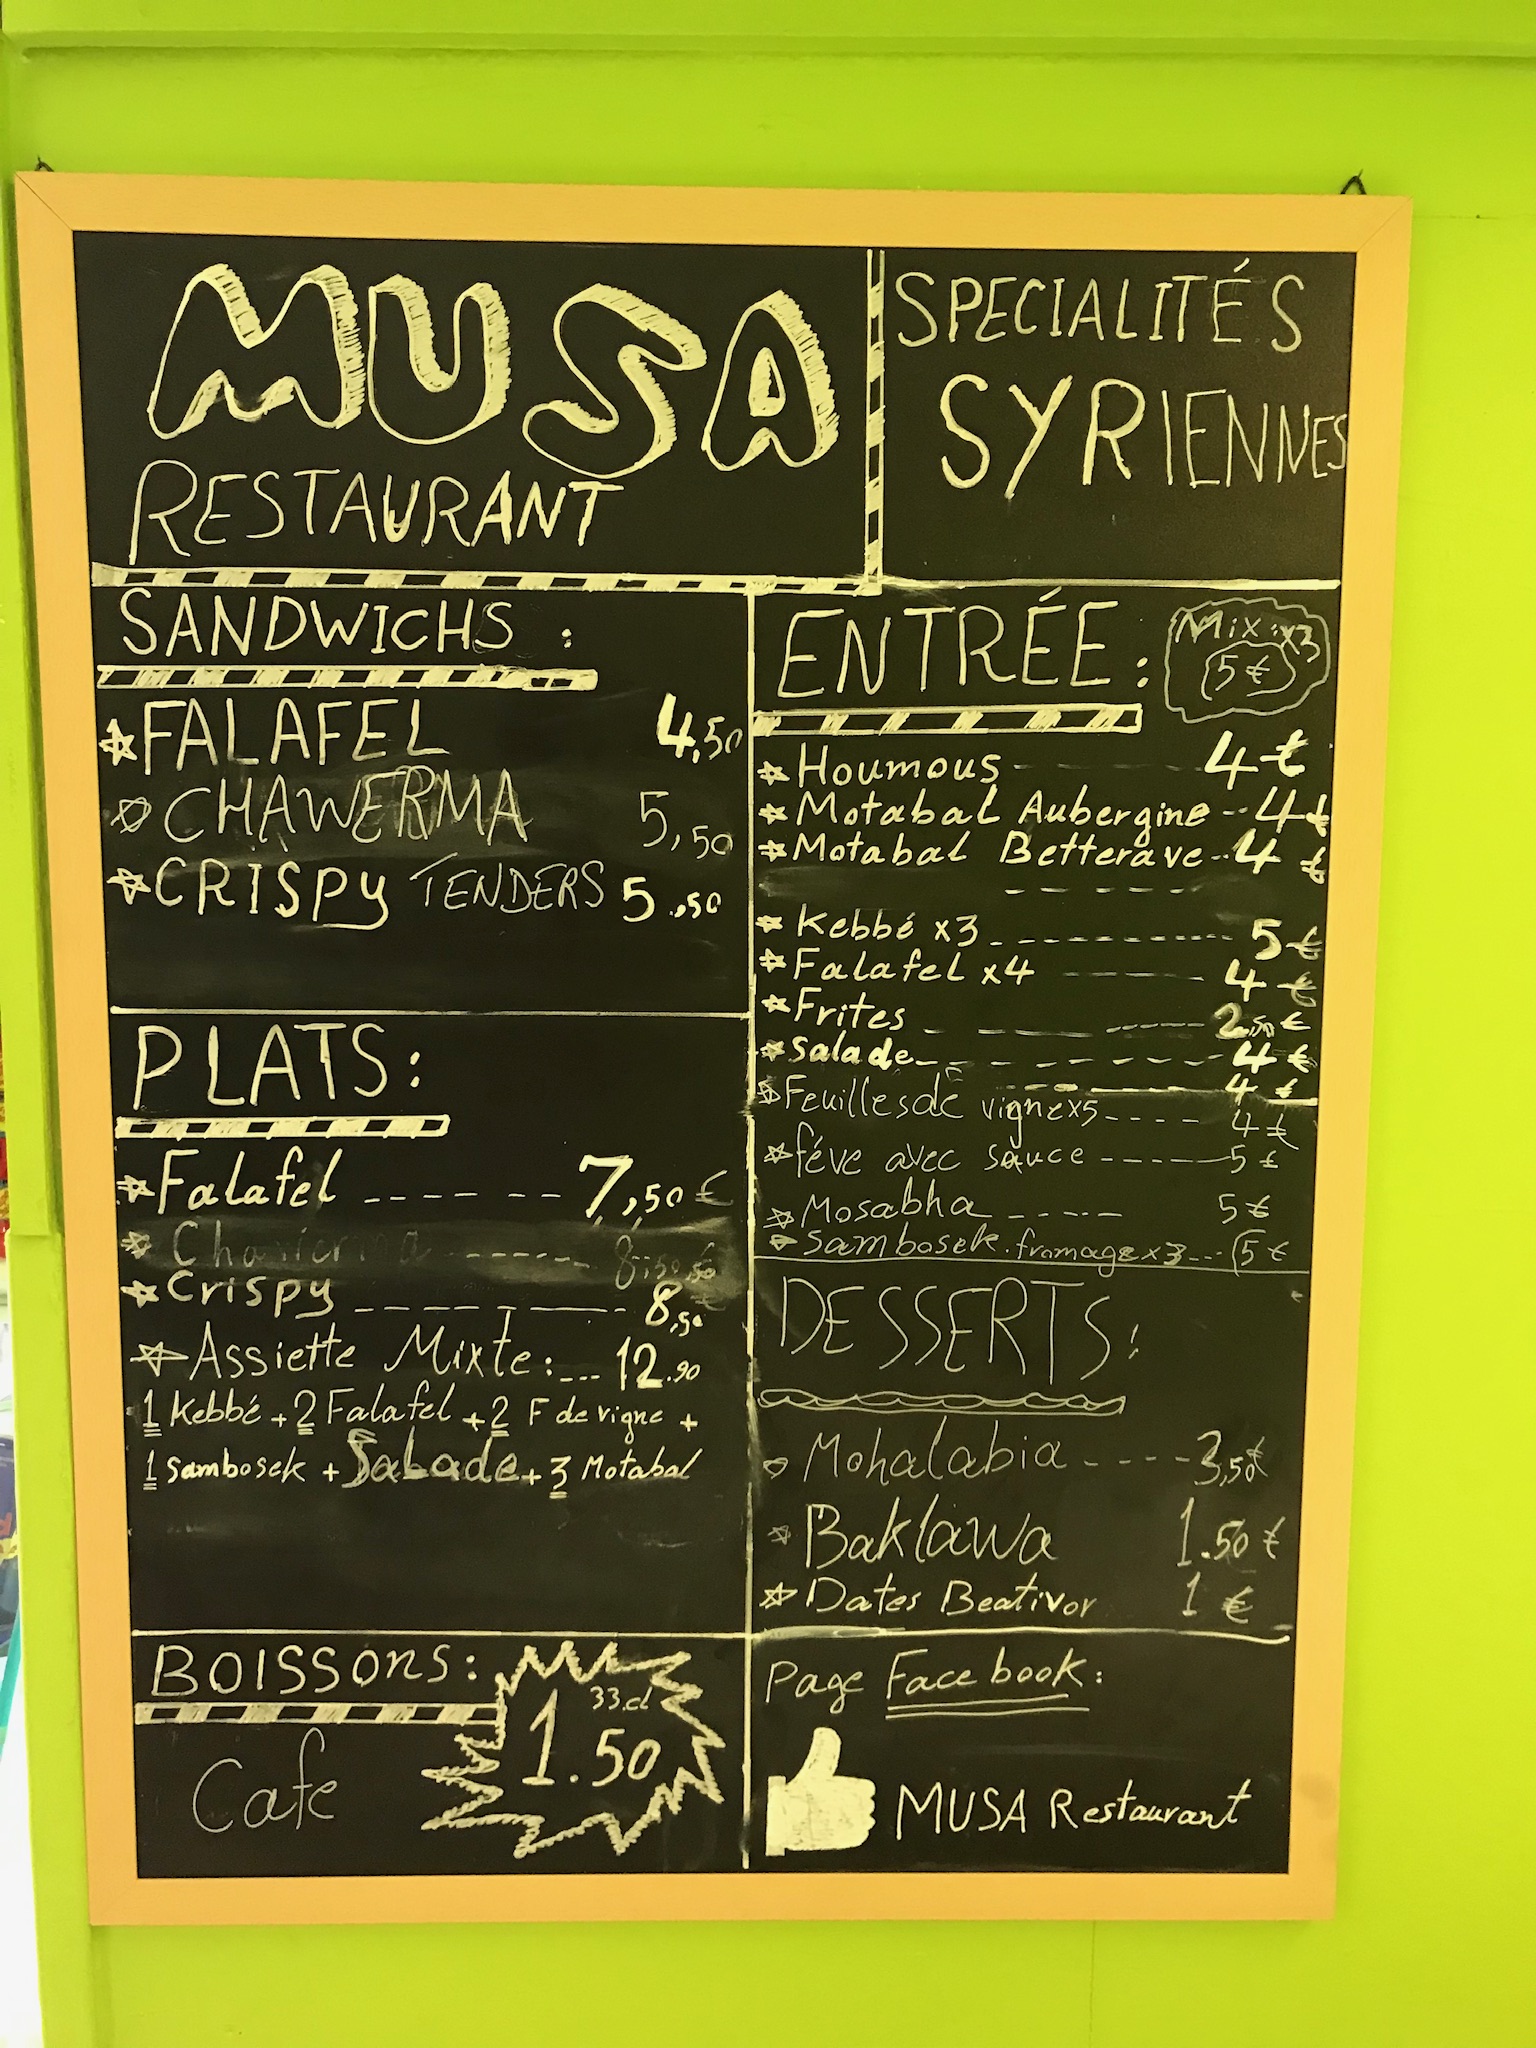 MUSA
RESTAURANT
SPECIALITÉS
SYRIENNES
SANDWICHS :
FALAFEL 4,50
CHAWERMA 5,50
CRISPY TENDERS 5,50
PLATS:
Falafel ---- -- -- 7,50 €
Chawerma ------ 8,50
Crispy ---------- 8,50
Assiette Mixte:... 12.90
1 Kebbé + 2 Falafel + 2 F de vigne +
1 Sambosek + Salade + 3 Motabal
BOISSONS:
33.cl
1.50
Cafe
ENTRÉE:
Mix: x3
5 €
Houmous ------ 4 €
Motabal Aubergine -- 4 €
Motabal Betterave -- 4 €
Kebbé x3 ---------- 5 €
Falafel x4 ------ 4 €
Frites ---------- 2,50 €
Salade ---------- 4 €
4 €
Feuilles de vigne x5 ---- 4 €
féve avec sauce ------ 5 €
Mosabha ----- 5 €
Sambosek.fromage x3 --- 5 €
DESSERTS:
Mohalabia ---- 3,50 €
Baklawa 1.50 €
Dates Beativor 1 €
Page Face book:
MUSA Restaurant